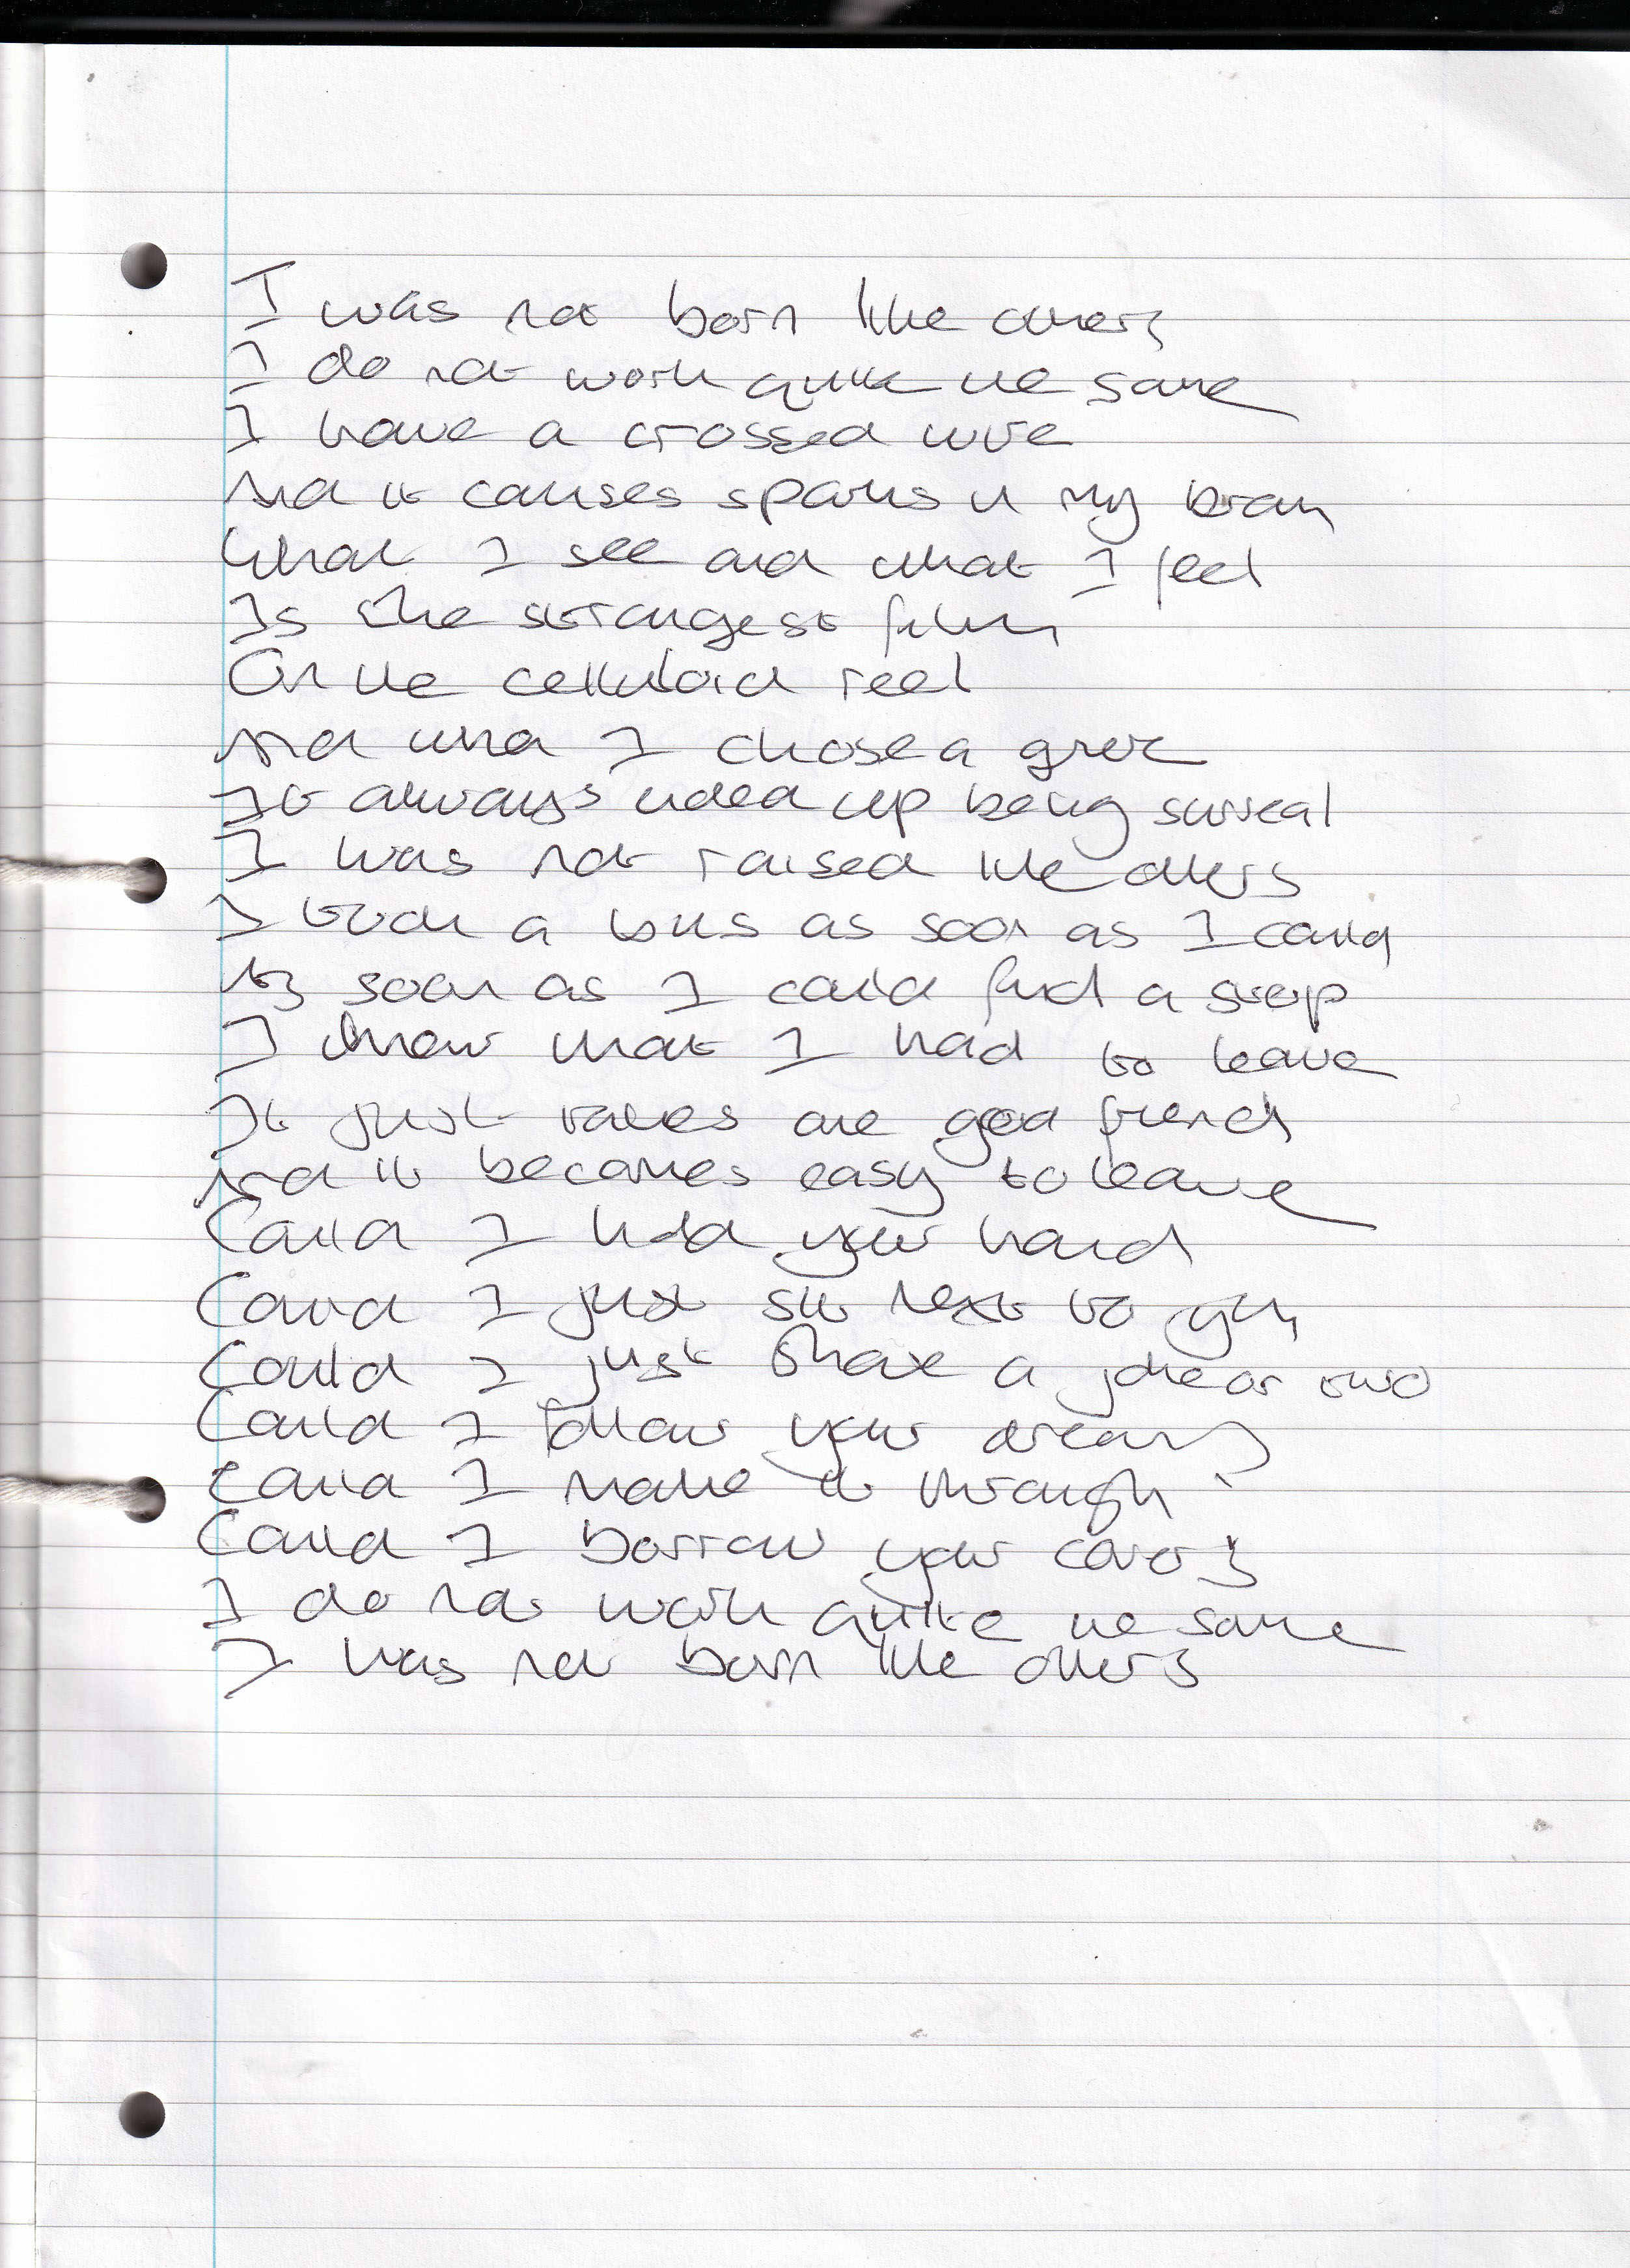 I was not born like others
I do not work quite the same
I have a crossed wire
And it causes sparks in my brain
What I see and what I feel
Is the strangest film
On the celluloid reel
And when I chose a
It always ended up being surreal
I was not raised like others
I took a bus as soon as I could
As soon as I could find a stop
I knew that I had to leave
It just takes one good friend
And it becomes easy to leave
Could I hold your hand
Could I just sit next to you
Could I just share a joke or two
Could I follow your dreams
Could I make it through
Could I borrow your covers
I do not work quite the same
I was not born like others